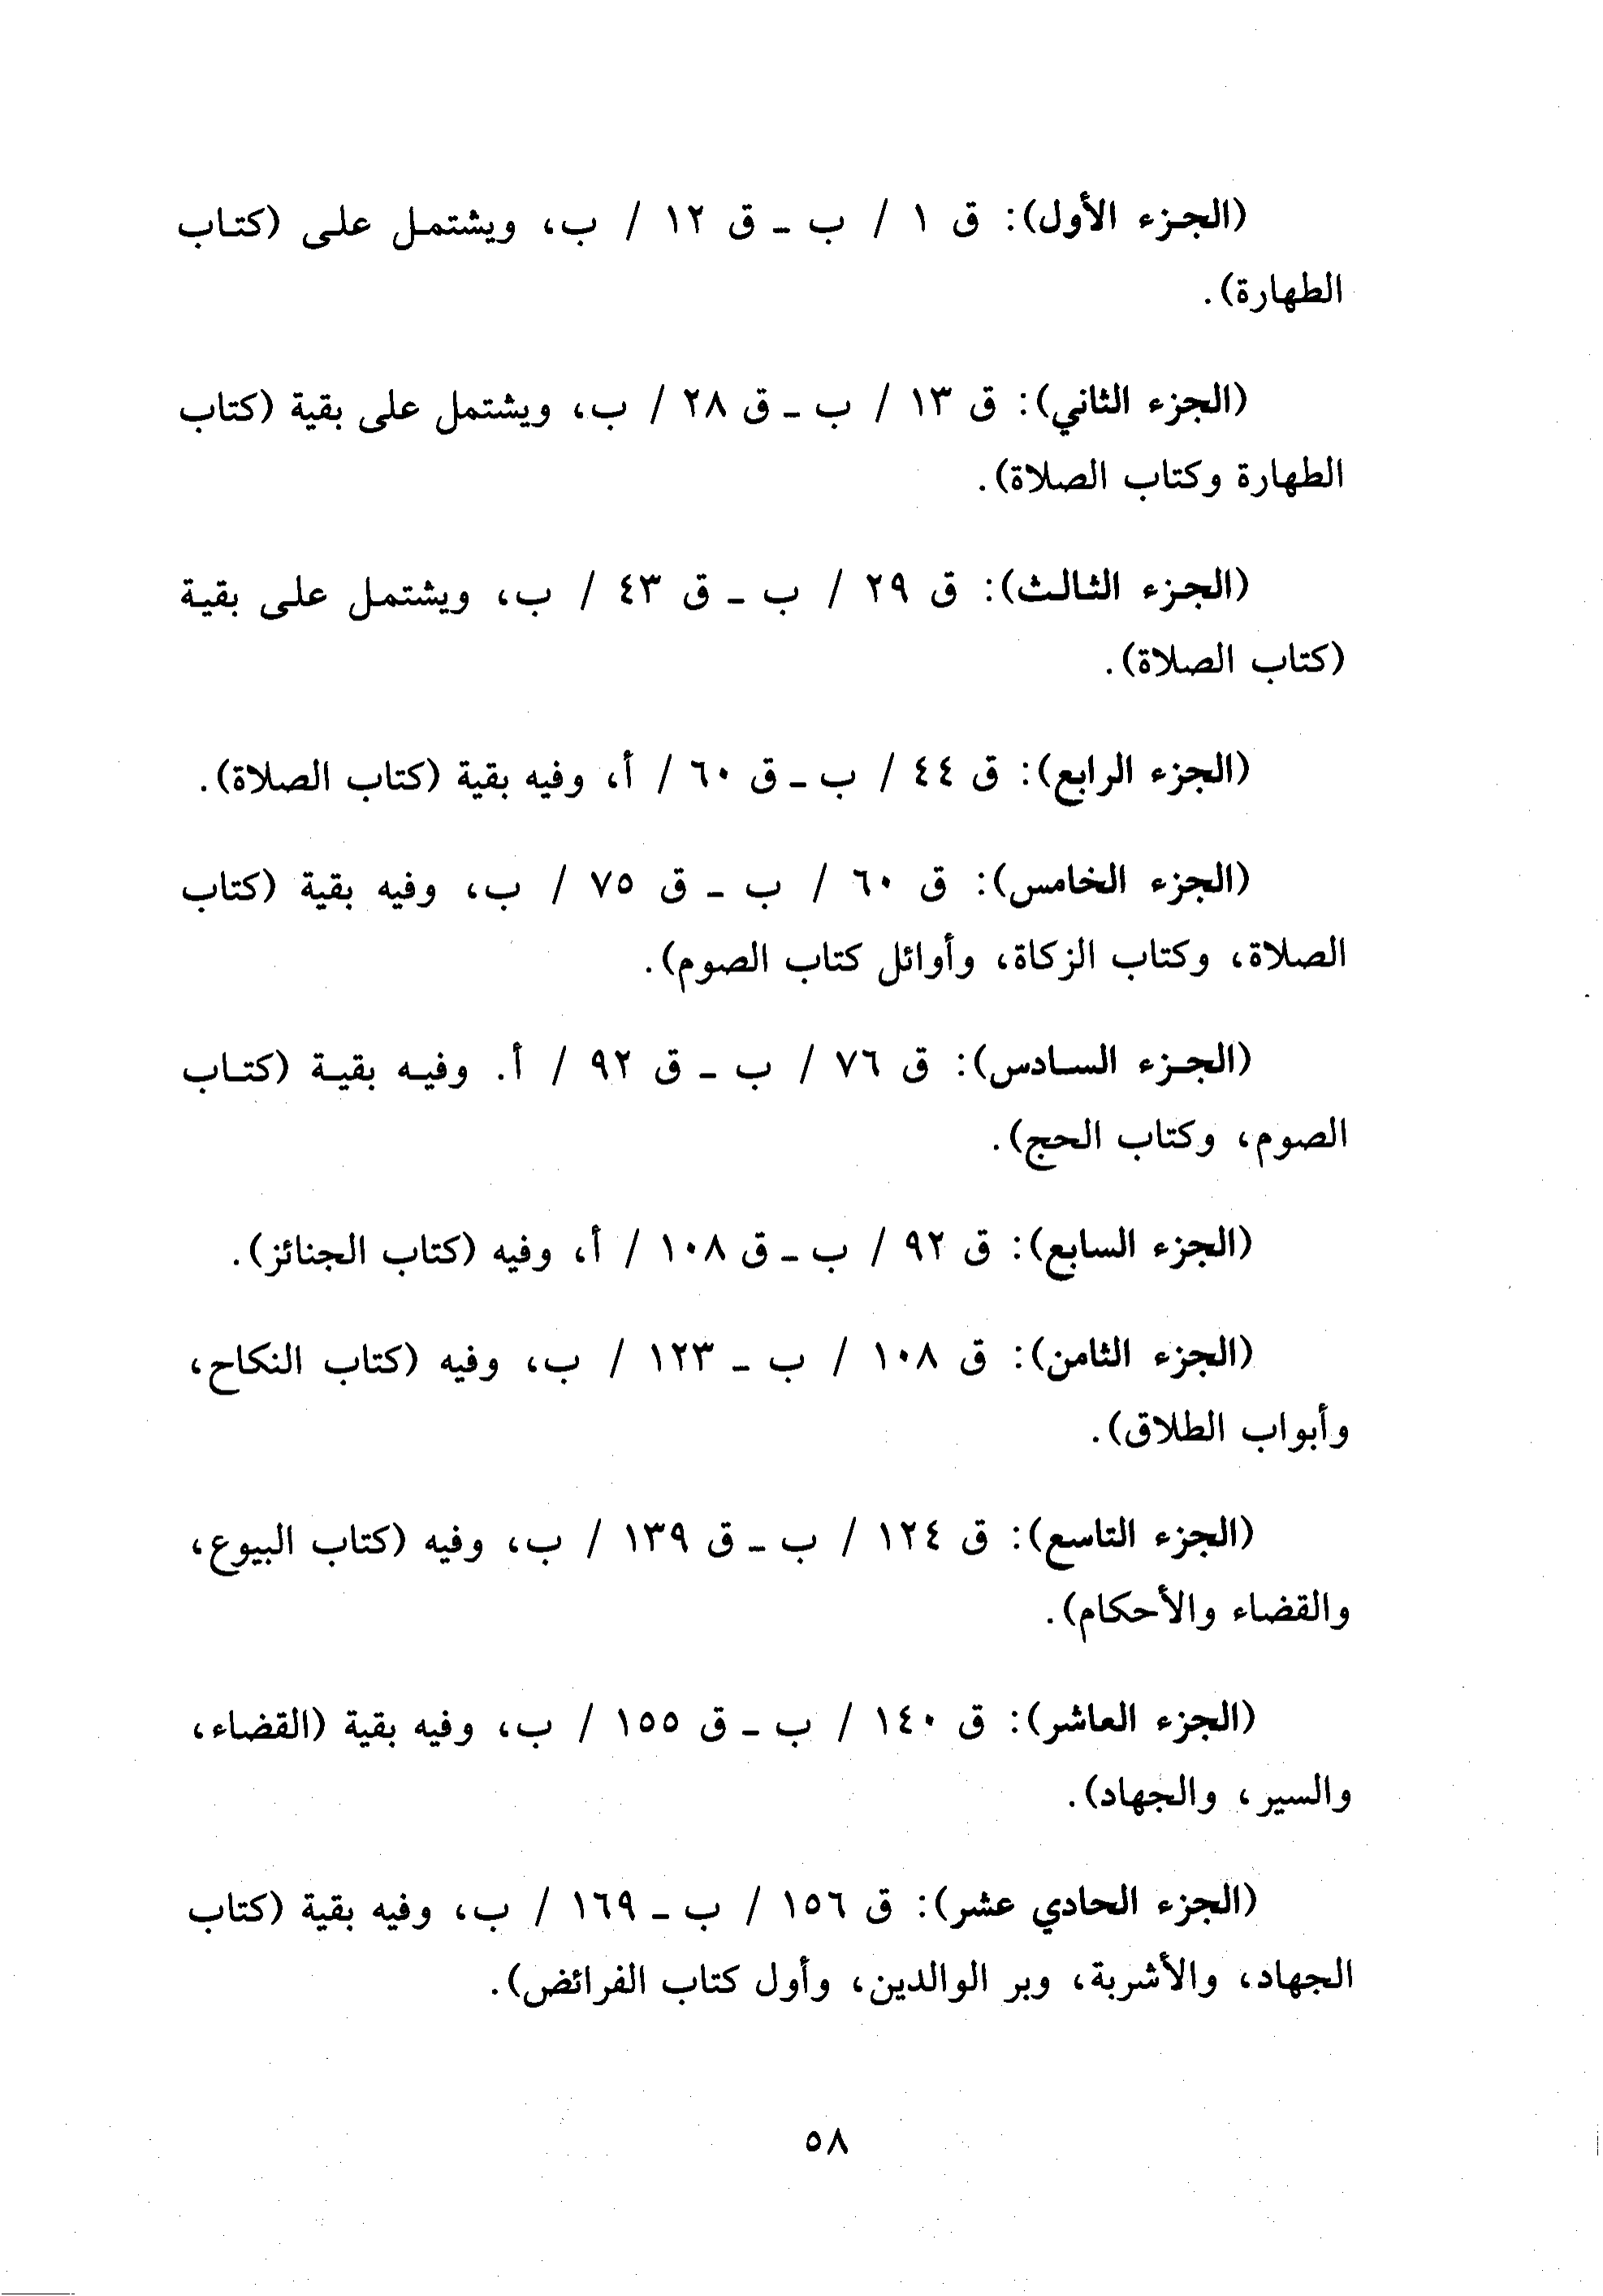 (الجزء الأول): ق ١ / ب ـ ق ١٢ / ب، ويشتمل على (كتاب
الطهارة).
(الجزء الثاني): ق ١٣ / ب ـ ق ٢٨ / ب، ويشتمل على بقية (كتاب
الطهارة وكتاب الصلاة).
(الجزء الثالث): ق ٢٩ / ب ـ ق ٤٣ / ب، ويشتمل على بقية
(كتاب الصلاة).
(الجزء الرابع): ق ٤٤ / ب ـ ق ٦٠ / أ، وفيه بقية (كتاب الصلاة).
(الجزء الخامس): ق ٦٠ / ب ـ ق ٧٥ / ب، وفيه بقية (كتاب
الصلاة، وكتاب الزكاة، وأوائل كتاب الصوم).
(الجزء السادس): ق ٧٦ / ب ـ ق ٩٢ / أ. وفيه بقية (كتاب
الصوم، وكتاب الحج).
(الجزء السابع): ق ٩٢ / ب ـ ق ١٠٨ / أ، وفيه (كتاب الجنائز).
(الجزء الثامن): ق ١٠٨ / ب ـ ١٢٣ / ب، وفيه (كتاب النكاح،
وأبواب الطلاق).
(الجزء التاسع): ق ١٢٤ / ب ـ ق ١٣٩ / ب، وفيه (كتاب البيوع،
والقضاء والأحكام).
(الجزء العاشر): ق ١٤٠ / ب ـ ق ١٥٥ / ب، وفيه بقية (القضاء،
والسير، والجهاد).
(الجزء الحادي عشر): ق ١٥٦ / ب ـ ١٦٩ / ب، وفيه بقية (كتاب
الجهاد، والأشربة، وبر الوالدين، وأول كتاب الفرائض).
٥٨